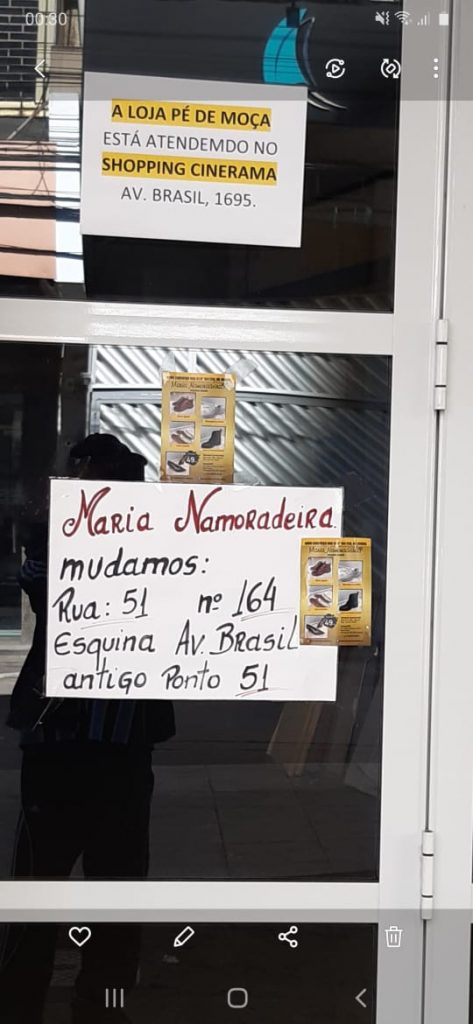 00:30
A LOJA PÉ DE MOÇA
ESTÁ ATENDEMDO NO
SHOPPING CINERAMA
AV. BRASIL, 1695.
Maria Namoradeira
49,
Maria Namoradeira.
mudamos:
Rua: 51 nº 164
Esquina Av. Brasil
antigo Ponto 51
Maria Namoradeira
49,